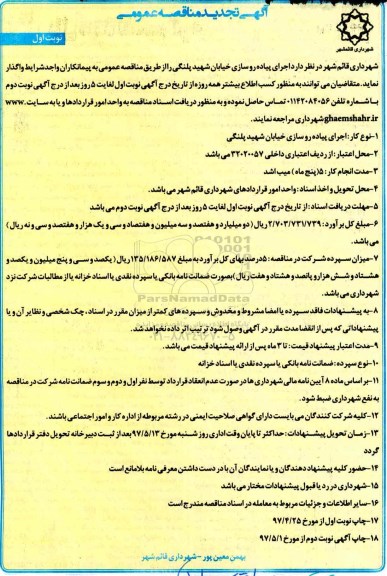 آگهی تجدید مناقصه عمومی
شهرداری قائمشهر
نوبت اول
شهرداری قائم شهر در نظر دارد اجرای پیاده روسازی خیابان شهید پلنگی را از طریق مناقصه عمومی به پیمانکاران واجد شرایط واگذار
نماید. متقاضیان می توانند به منظور کسب اطلاع بیشتر همه روزه از تاریخ درج آگهی نوبت اول لغایت ۵ روز بعد از درج آگهی نوبت دوم
با شماره تلفن ۰۱۱۴۲۰۸۴۰۵۶ تماس حاصل نموده و به منظور دریافت اسناد مناقصه به واحد امور قراردادها و یا به سایت www.
ghaemshahr.ir شهرداری مراجعه نمایند.
۱-نوع کار: اجرای پیاده رو سازی خیابان شهید پلنگی
۲-محل اعتبار: از ردیف اعتباری داخلی ۳۲۰۲۰۰۵۷ می باشد
۳-مدت انجام کار: ۵(پنج ماه) میب اشد
۴-محل تحویل و اخذ اسناد: واحد امور قراردادهای شهرداری قائم شهر می باشد.
۵-مهلت دریافت اسناد: از تاریخ درج آگهی نوبت اول لغایت ۵ روز بعد از درج آگهی نوبت دوم می باشد
۶-مبلغ کل برآورد: ۲/۷۰۳/۷۳۱/۷۳۹ ریال (دو میلیارد و هفتصد و سه میلیون و هفتصاد و سی و یک هزار و هفتصد و سی و نه ریال)
می باشد.
۷-میزان سپرده شرکت در مناقصه: ۵درصد بهای کل برآورد به مبلغ ۱۳۵/۱۸۶/۵۸۷ ریال (یکصد و سی و پنج میلیون و یکصد و
هشتاد و شش هزار و پانصد و هشتاد و هفت ریال) بصورت ضمانت نامه بانکی یا سپرده نقدی یا اسناد خزانه یا از مطالبات شرکت نزد
شهرداری می باشد.
۸-به پیشنهادات فاقد سپرده یا امضا مشروط و مخدوش و سپرده های کمتر از میزان مقرر در اسناد، چک شخصی و نظایر آن و یا
پیشنهاداتی که پس از انقضا مدت مقرر در آگهی وصول شود ترتیب اثر داده نخواهد شد.
۹-مدت اعتبار پیشنهاد قیمت: تا ۳ ماه پس از ارائه پیشنهاد قیمت می باشد.
۱۰-نوع سپرده: ضمانت نامه بانکی یا سپرده نقدی یا اسناد خزانه
۱۱-بر اساس ماده ۸ آیین نامه مالی شهرداری ها در صورت عدم انعقاد قرارداد توسط نفر اول و دوم و سوم ضمانت نامه شرکت در مناقصه
به نفع شهرداری ضبط شود.
۱۲-کلیه شرکت کنندگان می بایست دارای گواهی صلاحیت ایمنی در رشته مربوطه از اداره کار و امور اجتماعی باشند.
۱۳-زمان تحویل پیشنهادات: حداکثر تا پایان وقت اداری روز شنبه مورخ ۹۷/۵/۱۳ بعد از ثبت دبیرخانه تحویل دفتر قراردادها
گردد
۱۴-حضور کلیه پیشنهاد دهندگان و یا نمایندگان آن با در دست داشتن معرفی نامه بلامانع است
۱۵-شهرداری در رد یا قبول پیشنهادات مختار می باشد
۱۶-سایر اطلاعات و جزئیات مربوط به معامله در اسناد مناقصه مندرج است
۱۷-چاپ نوبت اول از مورخ ۹۷/۴/۲۵
۱۸-چاپ آگهی نوبت دوم از مورخ ۹۷/۵/۱
بهمن معین پور - شهرداری قائم شهر